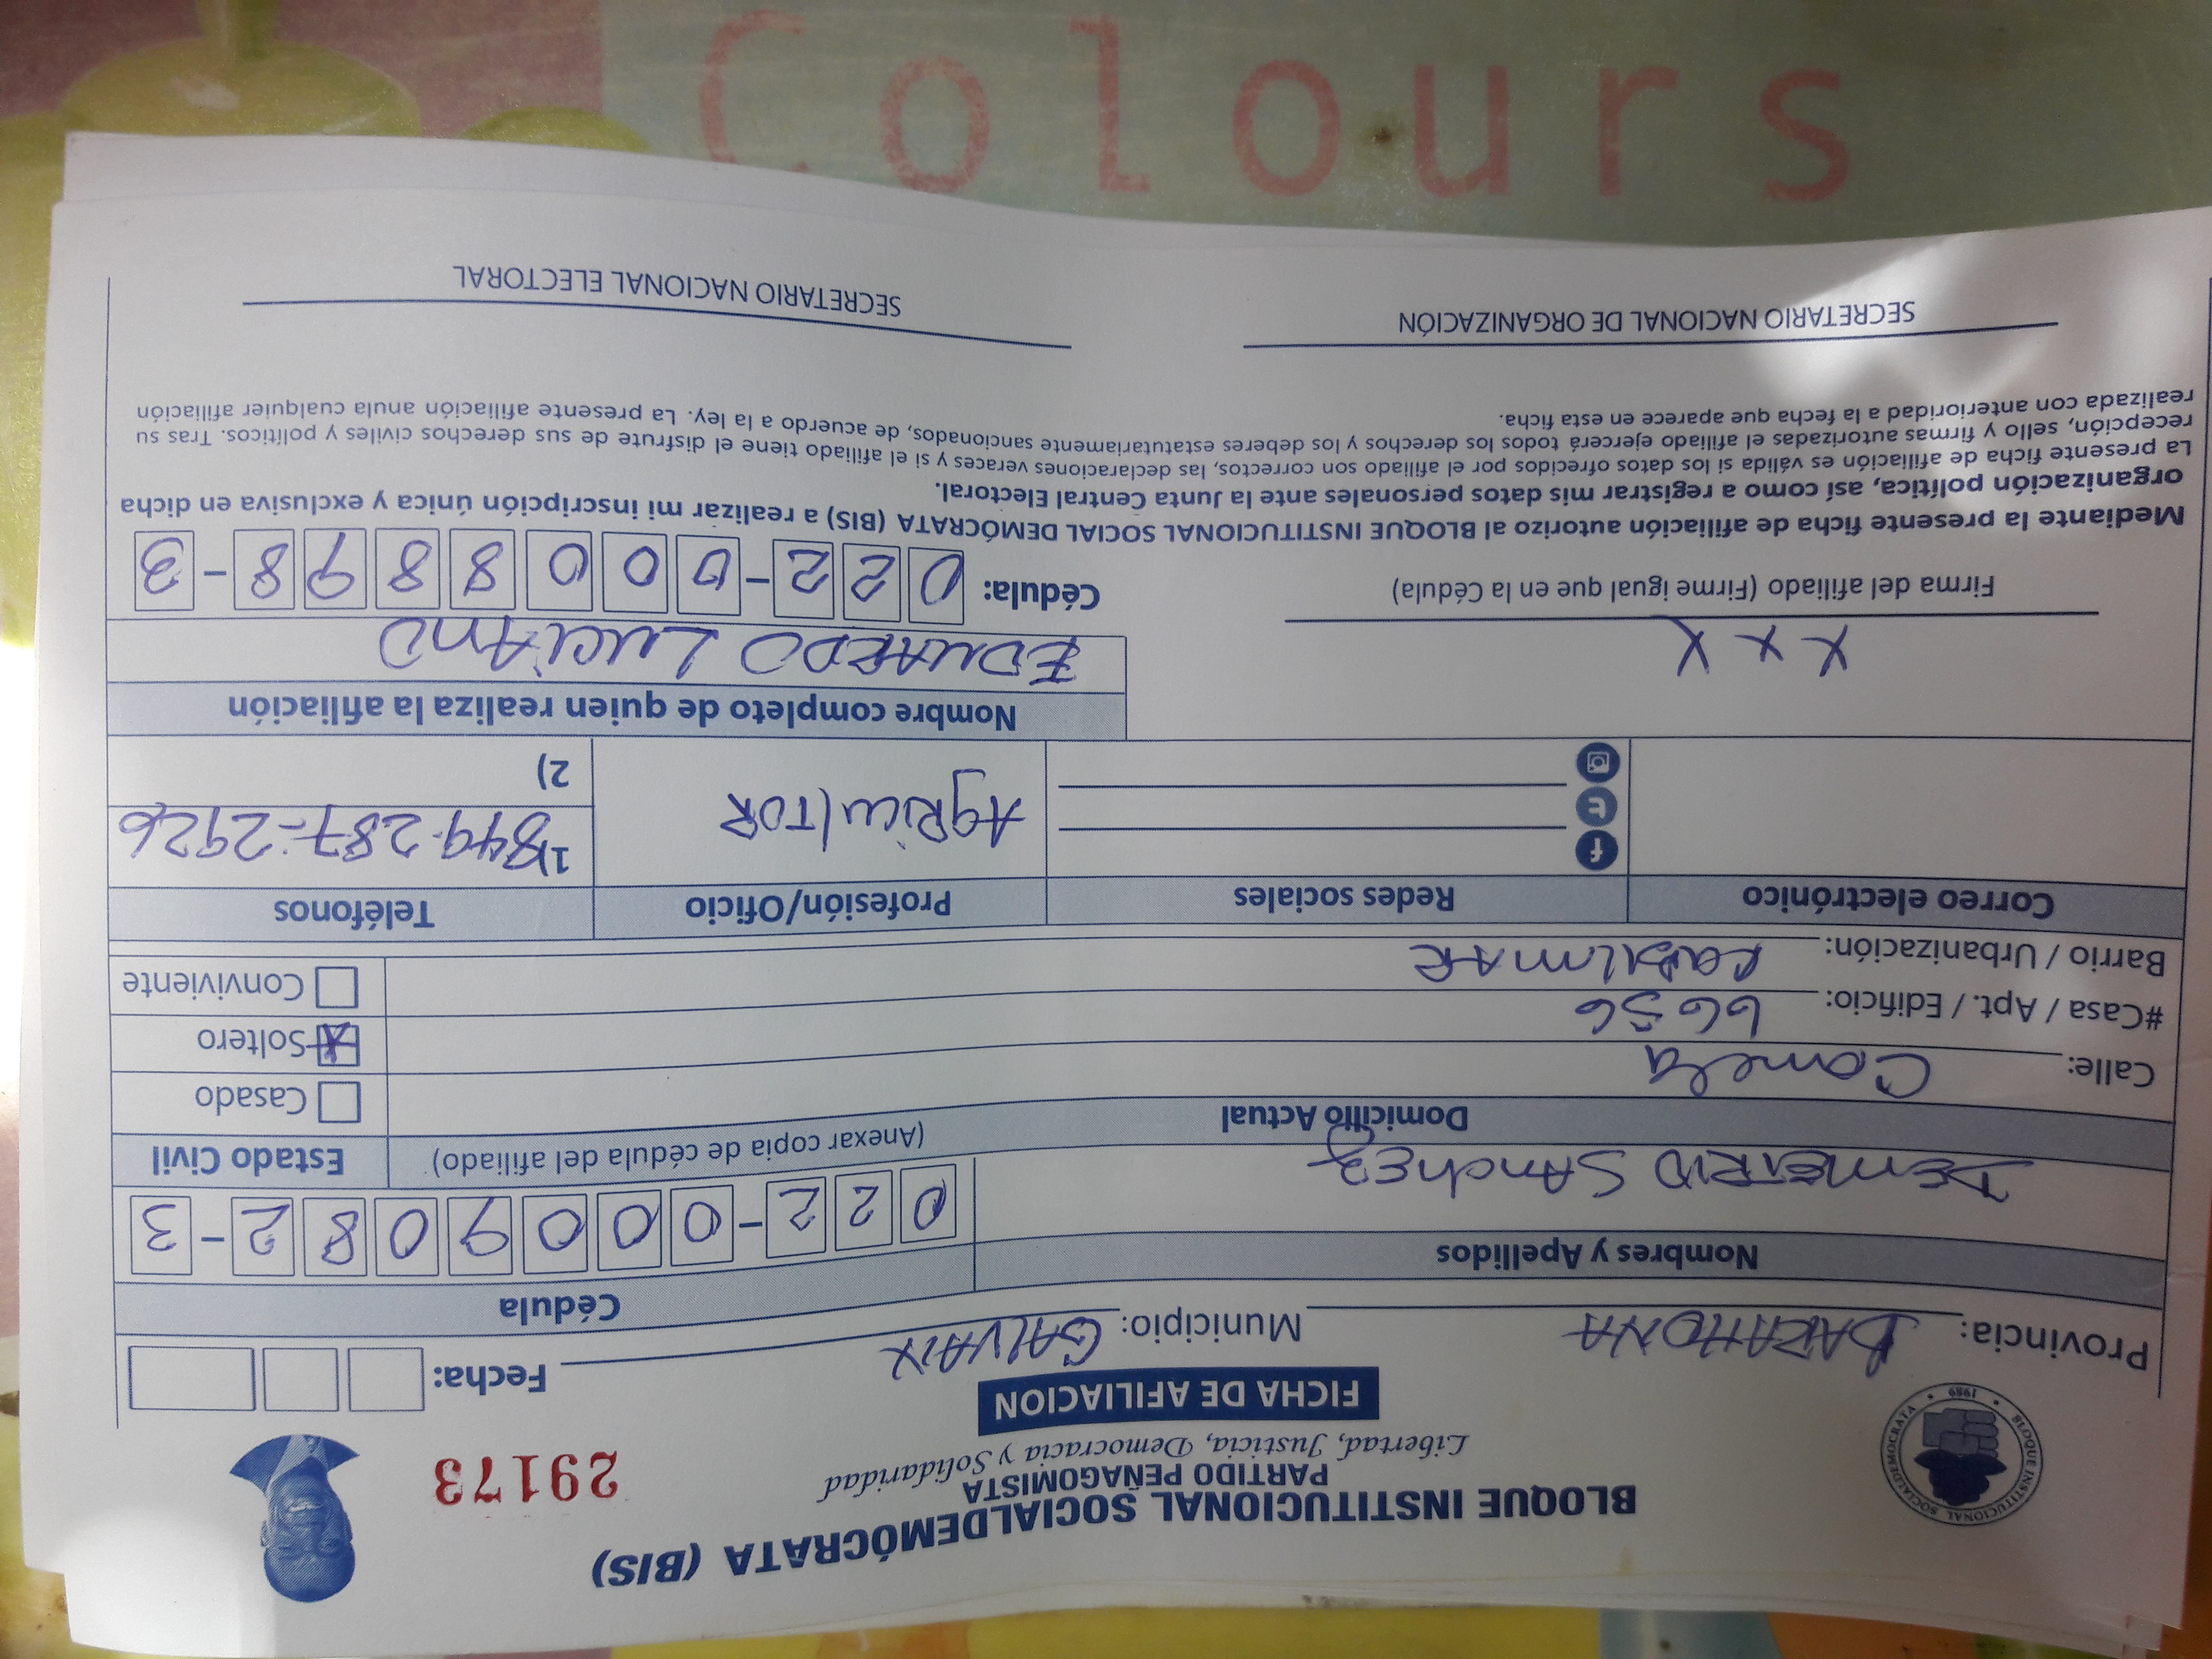 BLOQUE INSTITUCIONAL SOCIALDEMÓCRATA (BIS)
PARTIDO PEÑAGOMISTA
Libertad, Justicia, Democracia y Solidaridad
BLOQUE INSTITUCIONAL SOCIALDEMOCRATA
1989
29173
FICHA DE AFILIACION
Fecha:
Provincia: BARAHONA Municipio: GALVAN
Nombres y Apellidos Cédula
DEMETRIO SANCHEZ 022-0009082-3
Domicilio Actual (Anexar copia de cédula del afiliado) Estado Civil
Calle: Canela
Casado
#Casa / Apt. / Edificio:
X Soltero
Barrio / Urbanización:
Conviviente
Correo electrónico Redes sociales Profesión/Oficio Teléfonos
AgRicultOR
1) 849-287-2926
2)
Nombre completo de quien realiza la afiliación
X X X EDUARDO LUCIANO
Firma del afiliado (Firme igual que en la Cédula) Cédula: 022-0008898-3
Mediante la presente ficha de afiliación autorizo al BLOQUE INSTITUCIONAL SOCIAL DEMÓCRATA (BIS) a realizar mi inscripción única y exclusiva en dicha
organización política, así como a registrar mis datos personales ante la Junta Central Electoral.
La presente ficha de afiliación es válida si los datos ofrecidos por el afiliado son correctos, las declaraciones veraces y si el afiliado tiene el disfrute de sus derechos civiles y políticos. Tras su
recepción, sello y firmas autorizadas el afiliado ejercerá todos los derechos y los deberes estatutariamente sancionados, de acuerdo a la ley. La presente afiliación anula cualquier afiliación
realizada con anterioridad a la fecha que aparece en esta ficha.
SECRETARIO NACIONAL DE ORGANIZACIÓN SECRETARIO NACIONAL ELECTORAL
Colours